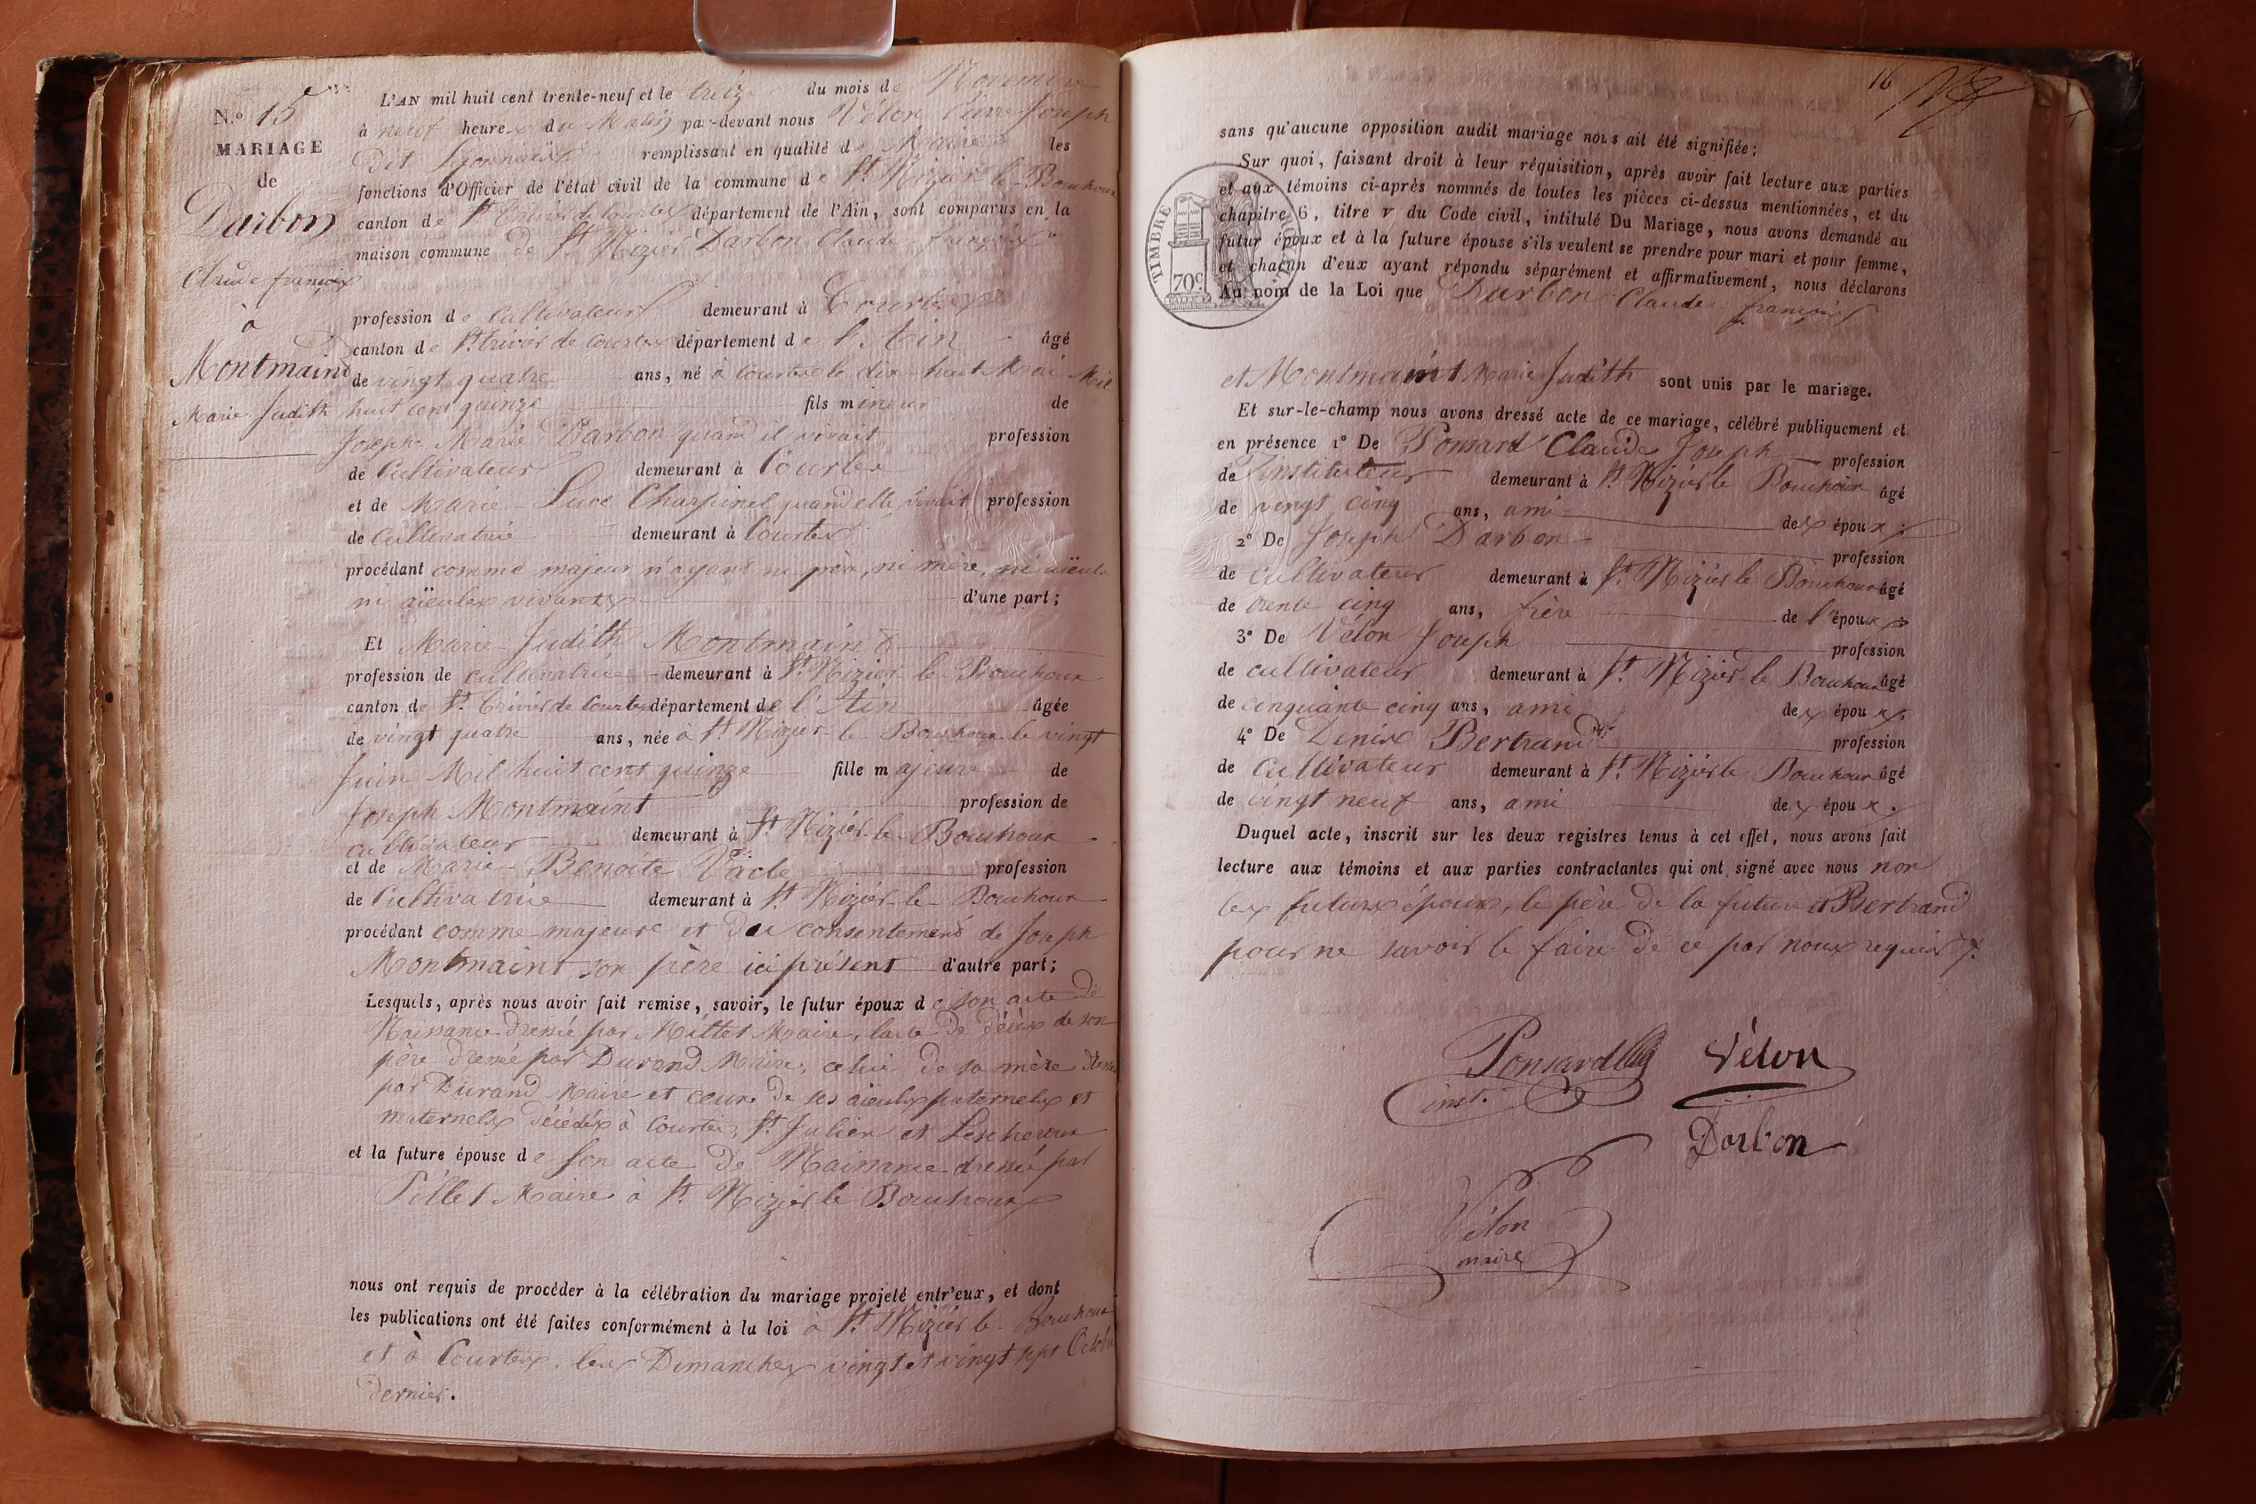 N.º 15
MARIAGE
de
Darbon
Claude françois
à
Montmaint
Marie Judith
L'AN mil huit cent trente-neuf et le treize du mois de Novembre
à neuf heures du Matin par-devant nous Vélon Pierre Joseph
dit Lyonnais remplissant en qualité de Maire les
fonctions d'Officier de l'état civil de la commune de St. Nizier le Bouchoux
canton de St. Trivier de Courtes département de l'Ain, sont comparus en la
maison commune de St. Nizier Darbon Claude françois
profession de Cultivateur demeurant à Courtes
canton de St. trivier de Courtes département de l'Ain âgé
de vingt quatre ans, né à Courtes le dix-huit Mai Mil
huit cent quinze fils mineur de
Joseph Marie Darbon quand il vivait profession
de Cultivateur demeurant à Courtes
et de Marie-Luce Charpinel quand elle vivait profession
de Cultivatrice demeurant à Courtes
procédant comme majeur n'ayant ni père, ni mère, ni aïeuls
ni aïeules vivants d'une part;
Et Marie-Judith Montmaint
profession de cultivatrice demeurant à St. Nizier le Bouchoux
canton de St. Trivier de Courtes département de l'Ain âgée
de vingt quatre ans, née à St. Nizier le Bouchoux le vingt
Juin Mil huit cent quinze fille majeure de
Joseph Montmaint profession de
cultivateur demeurant à St. Nizier le Bouchoux
et de Marie-Benoite Vacle profession
de Cultivatrice demeurant à St. Nizier-le-Bouchoux
procédant comme majeure et du consentement de Joseph
Montmaint son père ici présent d'autre part;
Lesquels, après nous avoir fait remise, savoir, le futur époux de son acte de
Naissance dressé par Millet Maire, l'acte de décès de son
père dressé par Durand Maire, celui de sa mère dressé
par Durand Maire et ceux de ses aïeuls paternels et
maternels décédés à Courtes, St. Julien et Lescheroux
et la future épouse de son acte de Naissance dressé par
Pillet Maire à St. Nizier le Bouchoux
nous ont requis de procéder à la célébration du mariage projeté entr'eux, et dont
les publications ont été faites conformément à la loi à St. Nizier le Bouchoux
et à Courtes, les Dimanches vingt et vingt sept Octobre
dernier.
16
sans qu'aucune opposition audit mariage nous ait été signifiée;
Sur quoi, faisant droit à leur réquisition, après avoir fait lecture aux parties
et aux témoins ci-après nommés de toutes les pièces ci-dessus mentionnées, et du
chapitre 6, titre V du Code civil, intitulé Du Mariage, nous avons demandé au
futur époux et à la future épouse s'ils veulent se prendre pour mari et pour femme,
et chacun d'eux ayant répondu séparément et affirmativement, nous déclarons
Au nom de la Loi que Darbon Claude françois
TIMBRE
70c.
et Montmaint Marie Judith sont unis par le mariage.
Et sur-le-champ nous avons dressé acte de ce mariage, célébré publiquement et
en présence 1º De Ponsard Claude Joseph profession
de Instituteur demeurant à St. Nizier le Bouchoux âgé
de vingt cinq ans, ami des époux;
2º De Joseph Darbon profession
de cultivateur demeurant à St. Nizier le Bouchoux âgé
de trente cinq ans, frère de l'époux
3º De Vélon Joseph profession
de cultivateur demeurant à St. Nizier le Bouchoux âgé
de cinquante cinq ans, ami des époux.
4º De Denise Bertrand profession
de Cultivateur demeurant à St. Nizier le Bouchoux âgé
de vingt neuf ans, ami des époux.
Duquel acte, inscrit sur les deux registres tenus à cet effet, nous avons fait
lecture aux témoins et aux parties contractantes qui ont signé avec nous non
les futurs époux, le père de la future et Bertrand
pour ne savoir le faire de ce par nous requis.
Ponsard Vélon
inst.
Darbon
Vélon
maire